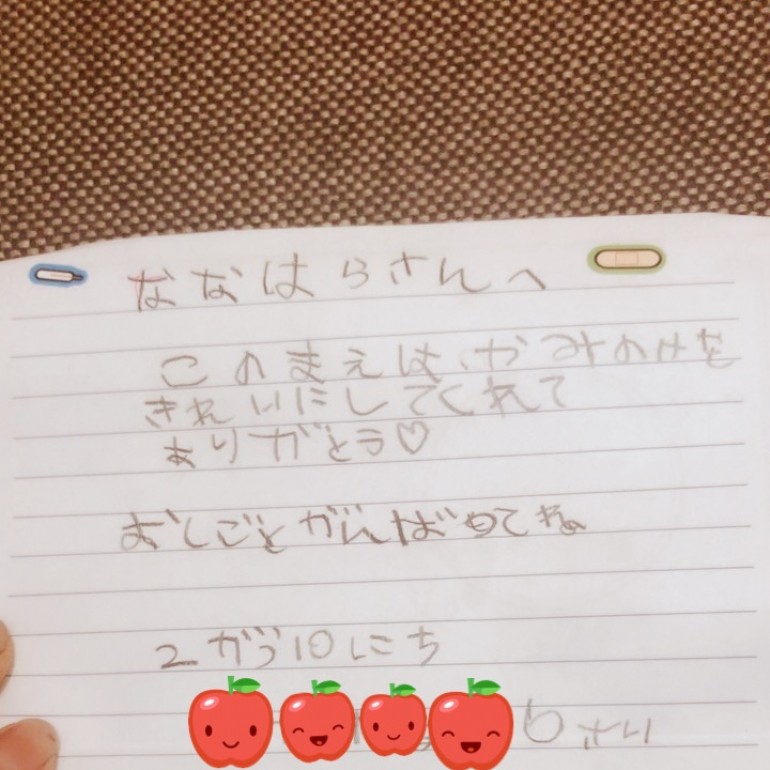 ななはらさんへ
このまえは、かみのけを
きれいにしてくれて
ありがとう♡
おしごとがんばってね
2がつ10にち
6さい